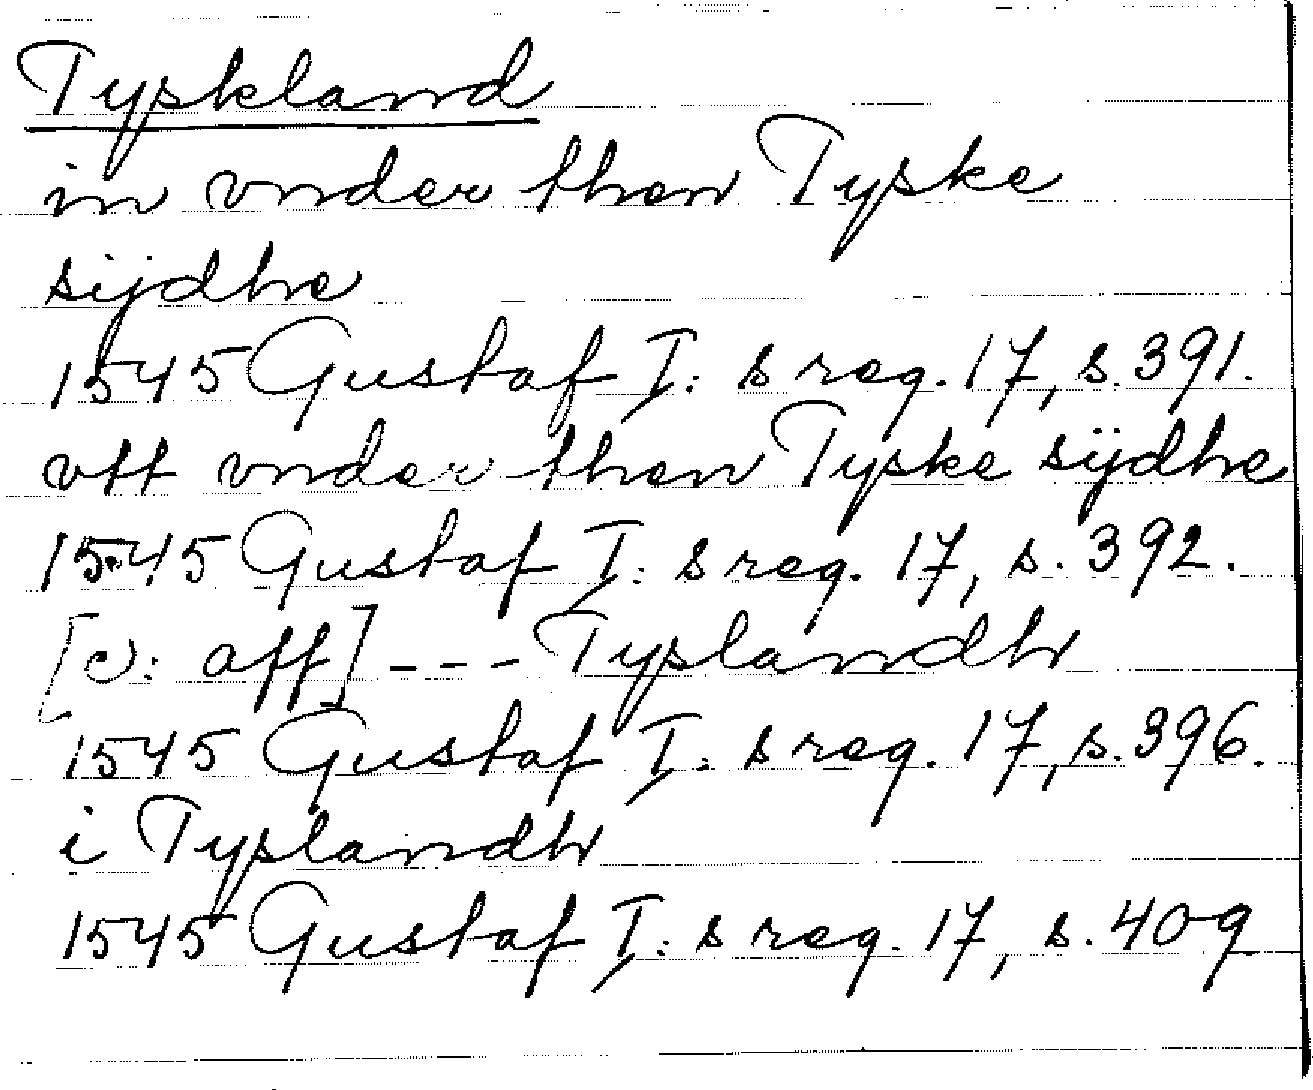 Tyskland
in vnder then Tyske
sijdhe
1545 Gustaf I: s reg. 17, s. 391.
vtt vnder then Tyske sÿdhe
1545 Gustaf I: s reg. 17, s. 392.
[v: aff] --- Tyslandh
1545 Gustaf I: s reg. 17, s. 396.
i Tyslandh
1545 Gustaf I: s reg. 17, s. 409